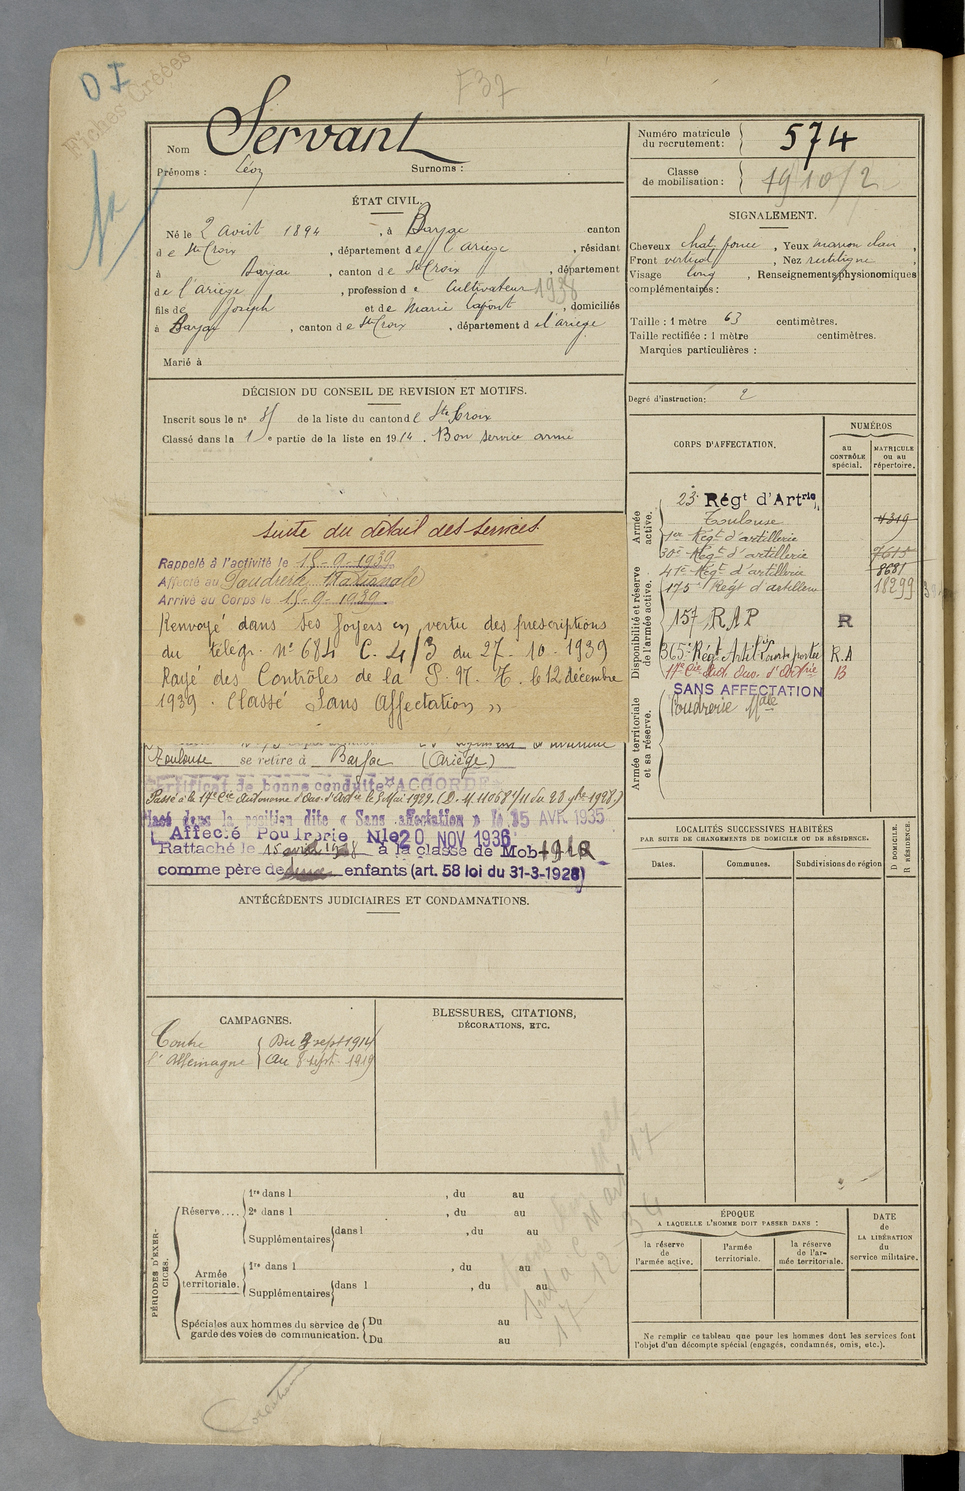 D I
Fiches Créées
F37
Nom Servant
Prénoms : Léon Surnoms :
Numéro matricule du recrutement : 574
Classe de mobilisation : 1910/2
ÉTAT CIVIL.
Né le 2 Août 1894, à Barjac canton
de Ste Croix, département de l'Ariège, résidant
à Barjac, canton de Ste Croix, département
de l'Ariège, profession de Cultivateur 1938
fils de Joseph et de Marie Lafont, domiciliés
à Barjac, canton de Ste Croix, département de l'Ariège
Marié à
SIGNALEMENT.
Cheveux chat. foncé, Yeux marron clair,
Front vertical, Nez rectiligne,
Visage long, Renseignements physionomiques
complémentaires :
Taille : 1 mètre 63 centimètres.
Taille rectifiée : 1 mètre centimètres.
Marques particulières :
Degré d'instruction : 2
DÉCISION DU CONSEIL DE REVISION ET MOTIFS.
Inscrit sous le n° de la liste du canton de Ste Croix
Classé dans la 1 e partie de la liste en 1914. Bon service armé
CORPS D'AFFECTATION.
NUMÉROS
au CONTRÔLE spécial.
MATRICULE ou au répertoire.
Armée active.
Disponibilité et réserve de l'armée active.
Armée territoriale et sa réserve.
23e Régt d'Artrie
Toulouse 4319
1er Régt d'artillerie
30e Régt d'artillerie 7615
41e Régt d'artillerie 8681
175e Régt d'artillerie 18299
157 RAP R
365e Régt Artillie portée R.A
17e Cie Aut. Ouv. d'Artrie B
SANS AFFECTATION
Poudrerie Nale
Suite du détail des services
Rappelé à l'activité le 15-9-1939
Affecté au Poudrerie Nationale
Arrivé au Corps le 15-9-1939
Renvoyé dans ses foyers en vertu des prescriptions
du télégr. N° 684 C. 4/3 du 27-10-1939
Rayé des Contrôles de la P. N. T. le 12 décembre
1939. Classé "Sans Affectation"
Toulouse se retire à Barjac (Ariège)
Certificat de bonne conduite "ACCORDÉ"
Passé à la 17e Cie Autonome d'Ouv. d'Artie le 5 Mai 1929. (D. M. 11058/11 du 28 9bre 1928)
Placé dans la position dite « Sans affectation » le 15 AVR. 1935
Affecté Poudrerie Nle 20 NOV 1936
Rattaché le 15 avril 1938 à la classe de Mob 1910
comme père de enfants (art. 58 loi du 31-3-1928)
ANTÉCÉDENTS JUDICIAIRES ET CONDAMNATIONS.
LOCALITÉS SUCCESSIVES HABITÉES
PAR SUITE DE CHANGEMENTS DE DOMICILE OU DE RÉSIDENCE.
Dates. Communes. Subdivisions de région
D DOMICILE.
R RÉSIDENCE.
CAMPAGNES.
Contre l'Allemagne { Du 3 sept 1914
Au 8 sept. 1919
BLESSURES, CITATIONS,
DÉCORATIONS, ETC.
PÉRIODES D'EXERCICES.
Réserve.... 1re dans l , du au
2e dans l , du au
Supplémentaires { dans l , du au
Armée territoriale. 1re dans l , du au
Supplémentaires { dans l , du au
Spéciales aux hommes du service de garde des voies de communication. { Du au
Du au
ÉPOQUE
A LAQUELLE L'HOMME DOIT PASSER DANS :
la réserve de l'armée active.
l'armée territoriale.
la réserve de l'armée territoriale.
DATE de LA LIBÉRATION du service militaire.
Ne remplir ce tableau que pour les hommes dont les services font
l'objet d'un décompte spécial (engagés, condamnés, omis, etc.).